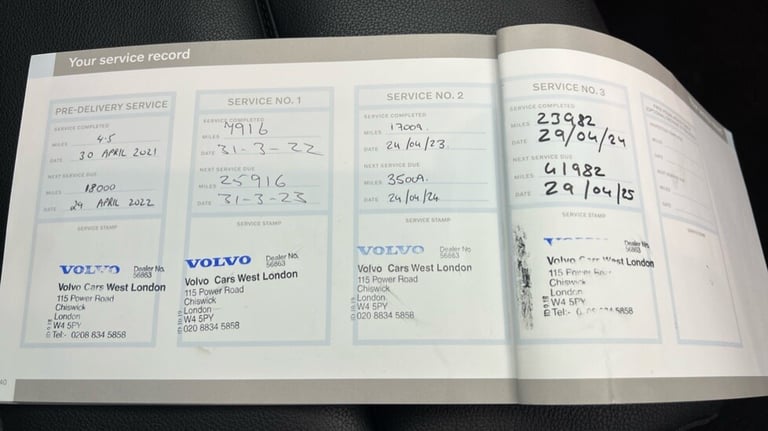 Your service record
PRE-DELIVERY SERVICE
SERVICE COMPLETED
MILES 4.5
DATE 30 APRIL 2021
NEXT SERVICE DUE
MILES 18000
DATE 29 APRIL 2022
SERVICE STAMP
VOLVO Dealer No.
56863
Volvo Cars West London
115 Power Road
Chiswick
London
W4 5PY
Tel:- 0208 834 5858
SERVICE NO. 1
SERVICE COMPLETED
MILES 7916
DATE 31-3-22
NEXT SERVICE DUE
MILES 25916
DATE 31-3-23
SERVICE STAMP
VOLVO Dealer No.
56863
Volvo Cars West London
115 Power Road
Chiswick
London
W4 5PY
020 8834 5858
SERVICE NO. 2
SERVICE COMPLETED
MILES 17009.
DATE 24/04/23.
NEXT SERVICE DUE
MILES
DATE 24/04/24
SERVICE STAMP
VOLVO Dealer No.
56863
Volvo Cars West London
115 Power Road
Chiswick
London.
W4 5PY
020 8834 5858
SERVICE NO. 3
SERVICE COMPLETED
MILES 23982
DATE 29/04/24
NEXT SERVICE DUE
MILES 41982
DATE 29/04/25
SERVICE STAMP
Dealer No.
56863
Volvo Cars West London
115
Chiswick
London
W4 5PY
Tel:-
40